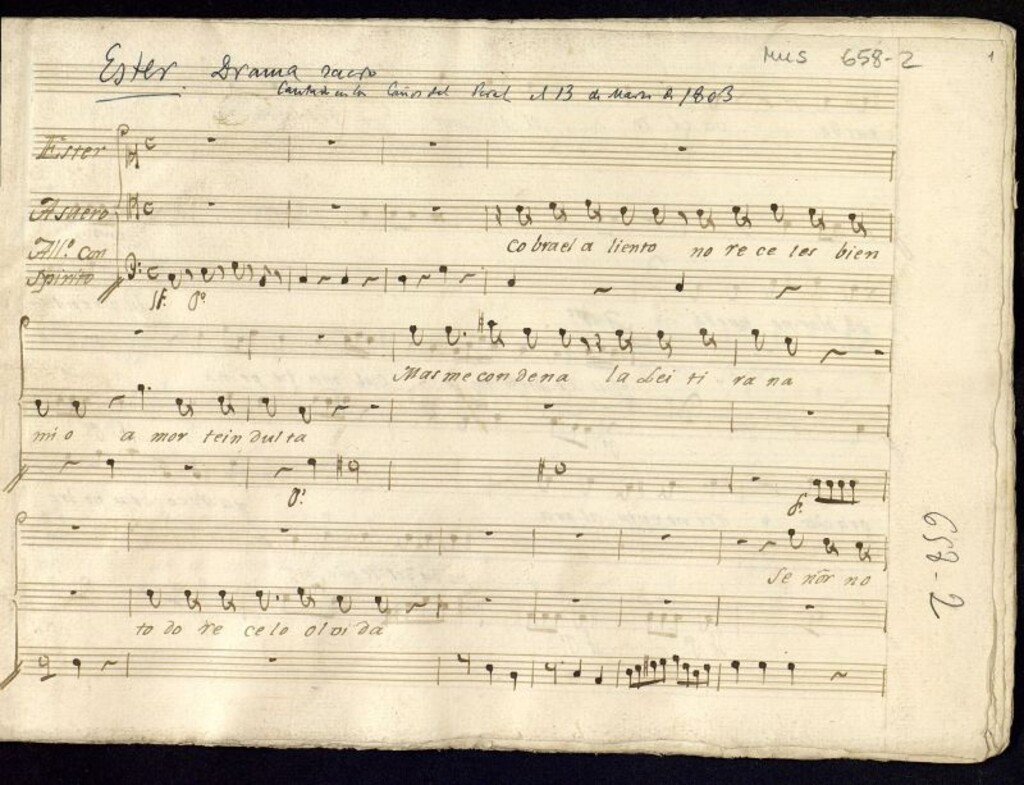 Mus 658-2
1
Ester. Drama sacro
Cantada en los Caños del Peral el 13 de Marzo de 1803
Ester
Asuero
Cobra el a liento no re ce les bien
All.º con
spirito
sf. pº
Mas me con dena la Lei ti ra na
mi o a mor te in dul ta
p.º
f.
Se ñor no
to do re ce lo ol vi da
658-2